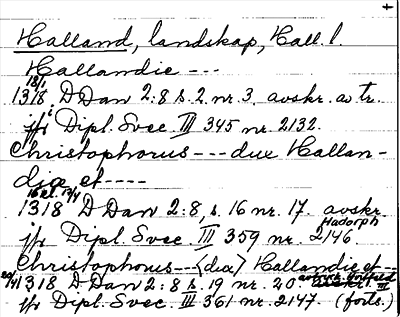 +
Halland, landskap, Hall. l.
Hallandie ---
18/1
1318, D Dan 2:8 s. 2 nr. 3, avskr. av tr.
jfr Dipl. Svec. III 345 nr. 2132.
Christophorus --- dux Hallan-
diæ et ----
16 el. 17/4
1318 D Dan 2:8, s. 16 nr. 17. avskr.
Hadorph
jfr Dipl. Svec. III 359 nr. 2146
Christophorus --- <dux> Hallandie et --
20/4 1318 D Dan 2:8 s. 19 nr. 20
jfr Dipl. Svec. III 361 nr. 2147 (forts.)